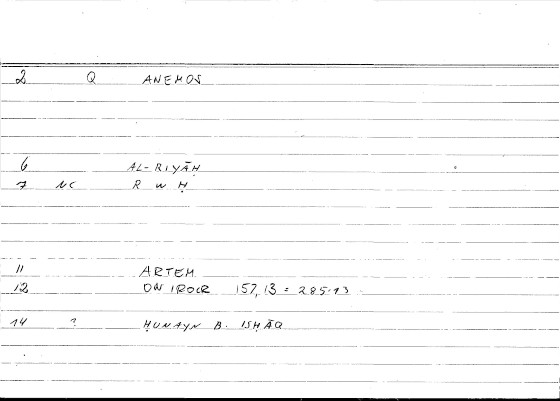 2 Q ANEMOS
6 AL-RIYĀḤ
7 NC R W Ḥ
11 ARTEM
12 ONIROCR 157,13 = 285.13
14 ? ḤUNAYN B. ISḤĀQ